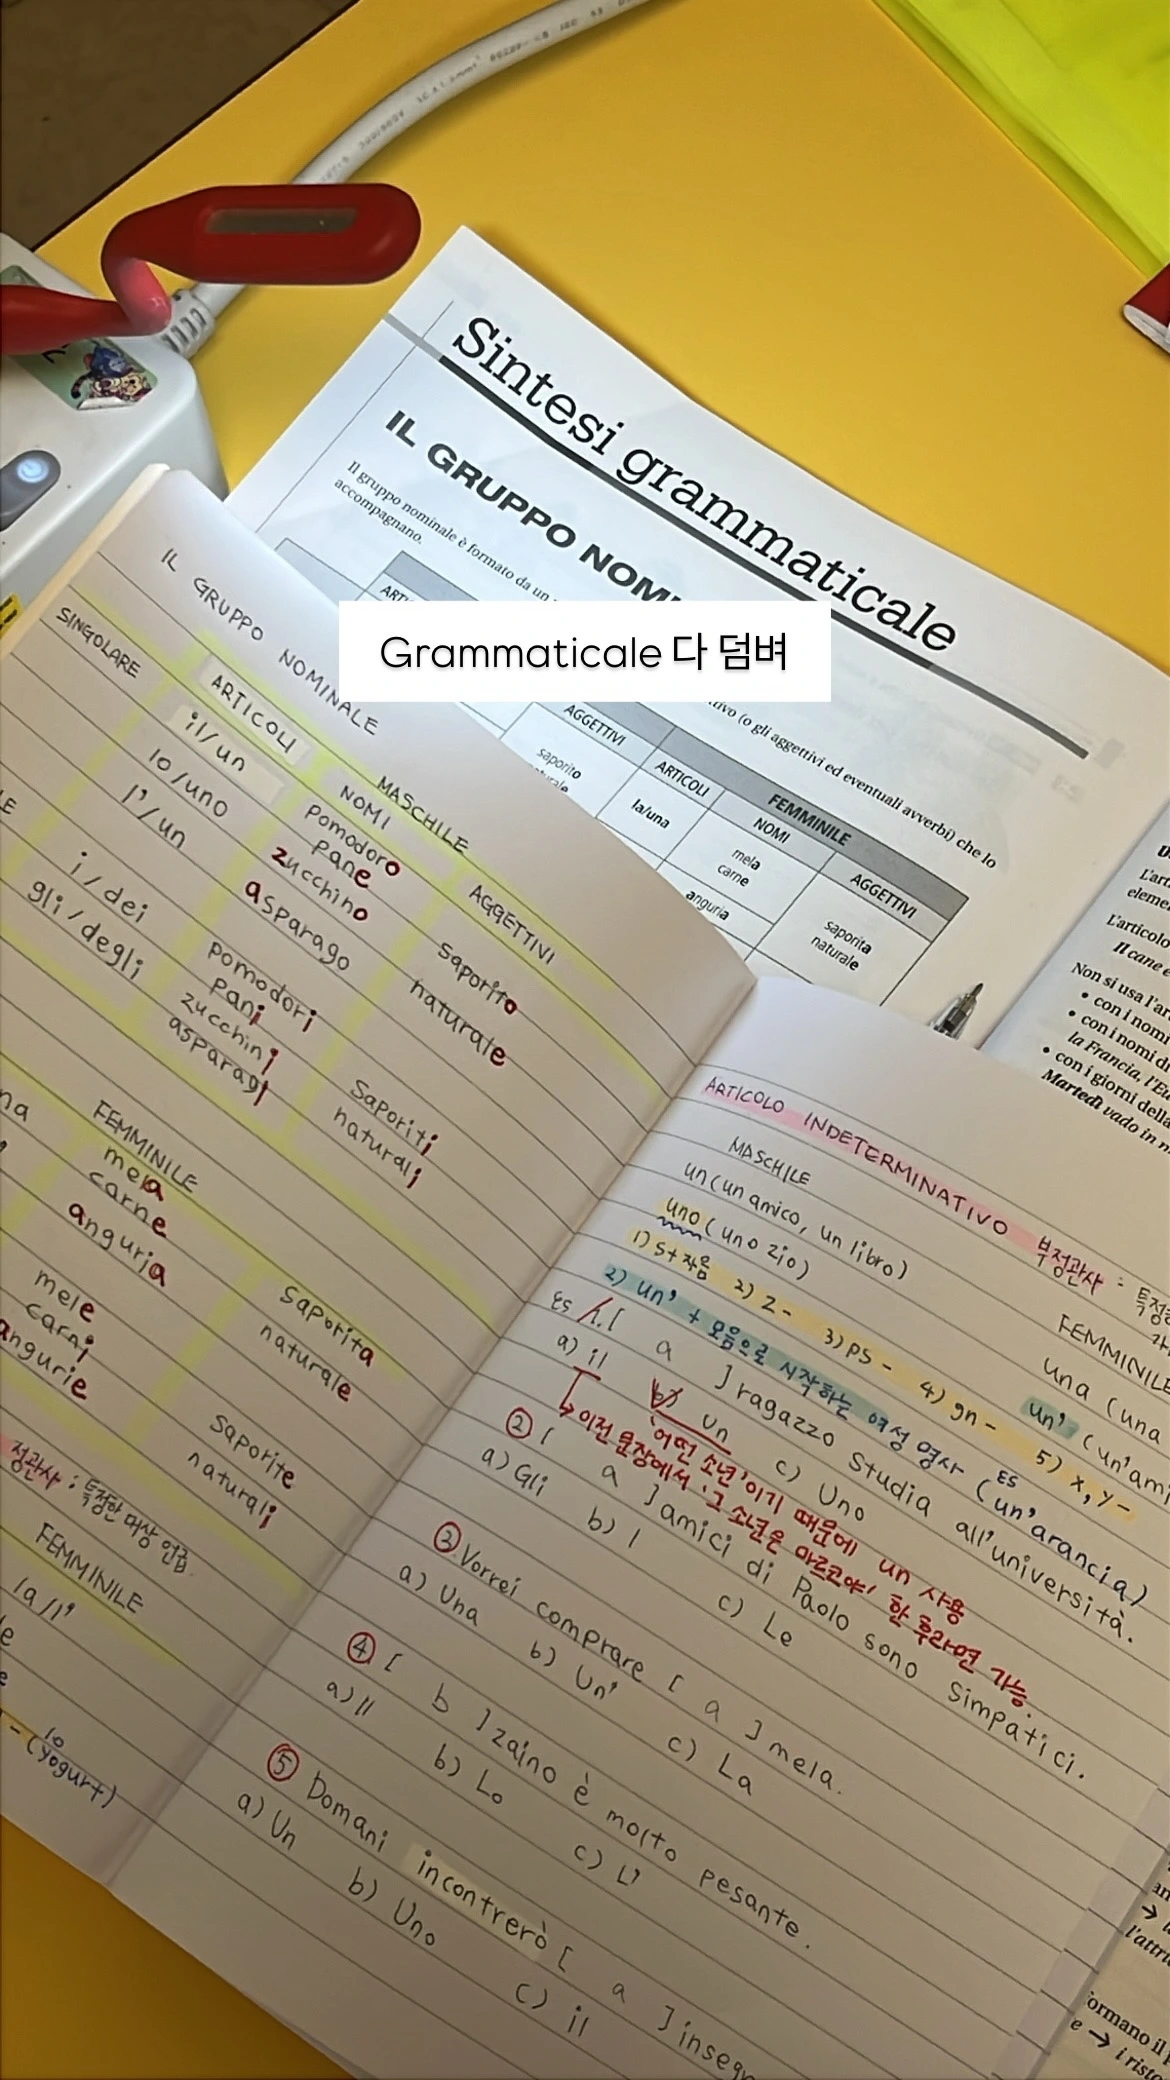 Sintesi grammaticale
IL GRUPPO NOMI
Il gruppo nominale è formato da un
tivo (o gli aggettivi ed eventuali avverbi) che lo
accompagnano.
Grammaticale 다 덤벼
FEMMINILE
AGGETTIVI ARTICOLI NOMI AGGETTIVI
saporito la/una mela saporita
carne naturale
anguria
L'articolo
Il cane e
Non si usa l'ar
• con i nomi
• con i nomi di
la Francia, l'Eu
• con i giorni della
Martedì vado in m
IL GRUPPO NOMINALE
SINGOLARE
MASCHILE
ARTICOLI NOMI AGGETTIVI
il/un pomodoro saporito
pane naturale
lo/uno zucchino
l'/un asparago
i/dei pomodori saporiti
pani naturali
gli/degli zucchini
asparagi
FEMMINILE
mela saporita
carne naturale
anguria
mele saporite
carni naturali
angurie
정관사 : 특정한 대상 언급.
FEMMINILE
la/l'
lo
(yogurt)
ARTICOLO INDETERMINATIVO 부정관사 :
MASCHILE
un (un amico, un libro)
uno (uno zio)
FEMMINILE
una (una
un' (un'ami
1) s+자음 2) z- 3) ps- 4) gn- 5) x, y-
2) un' + 모음으로 시작하는 여성 명사 (es un'arancia)
Es 1. [ a ] ragazzo studia all'università.
a) il b) un c) Uno
'어떤 소년'이기 때문에 un 사용
↳ 이전 문장에서 '그 소년은 마르코야' 한 후라면 가능.
② [ a ] amici di Paolo sono simpatici.
a) Gli b) I c) Le
③ Vorrei comprare [ a ] mela.
a) Una b) Un' c) La
④ [ b ] zaino è molto pesante.
a) Il b) Lo c) L'
⑤ Domani incontrerò [ a ] insegn
a) Un b) Uno c) il
l'attri
ormano il
e → i risto